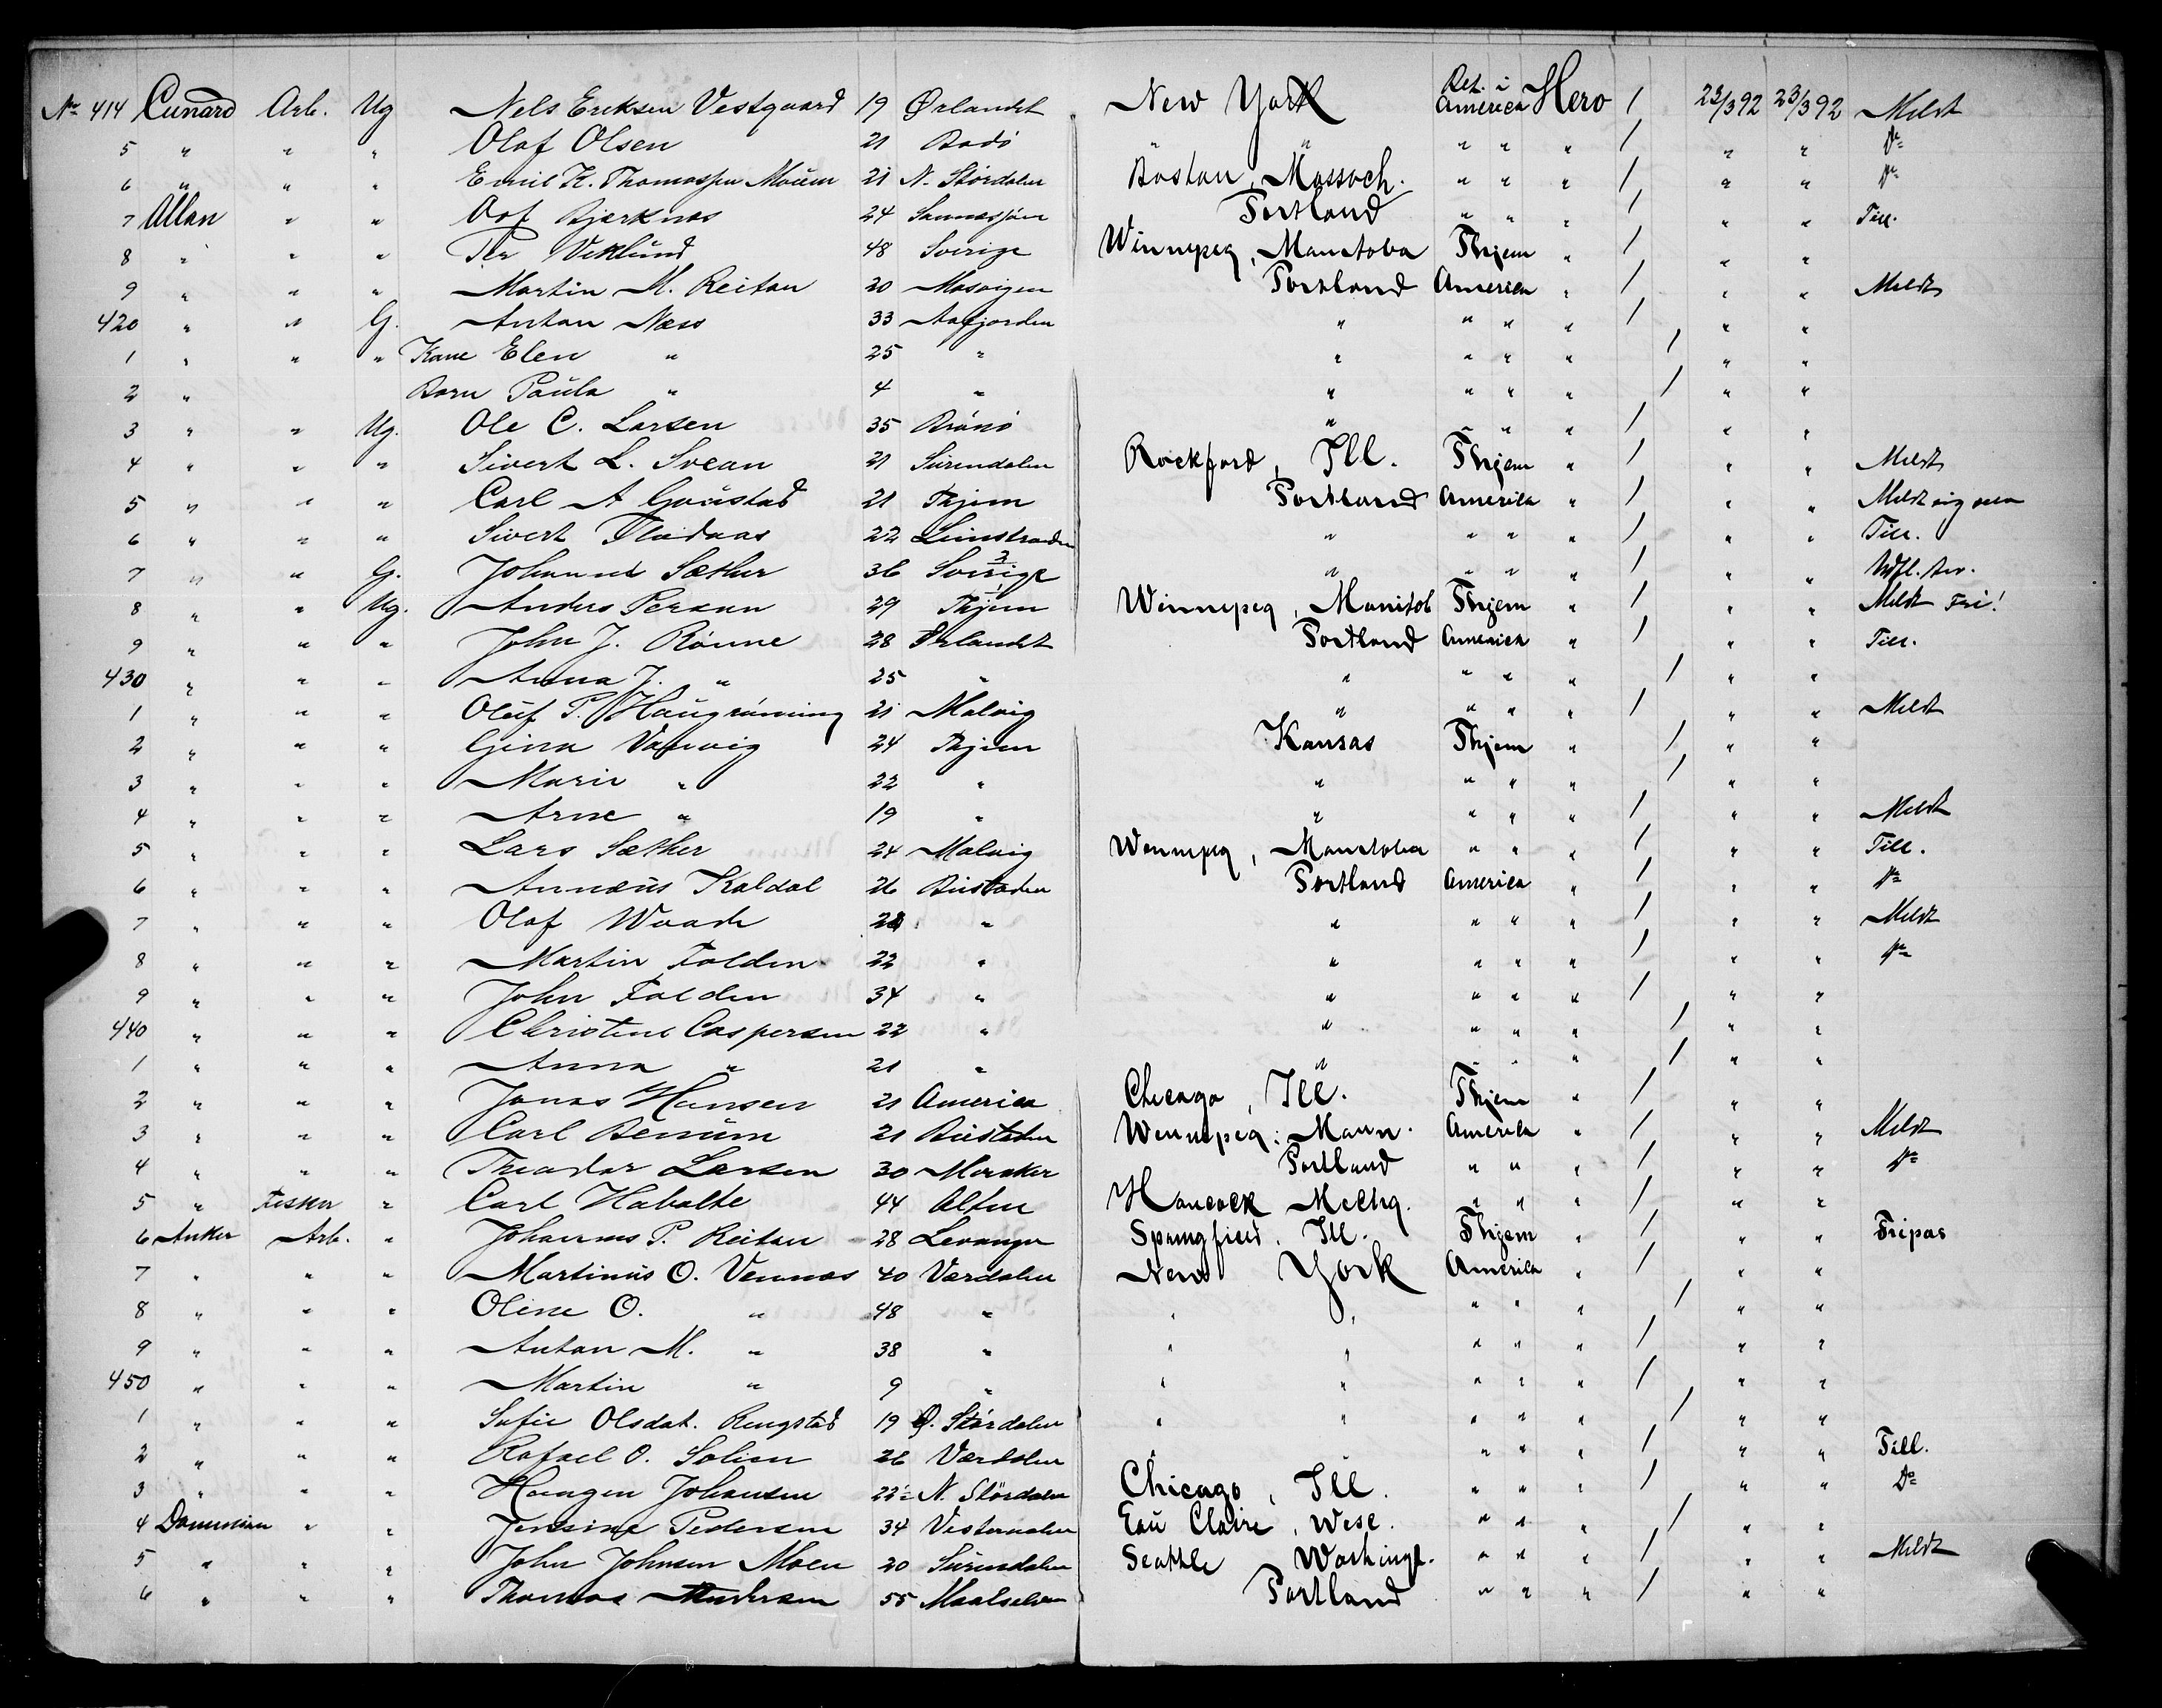 No 414 Cunard Arb. Ug Nels Eriksen Vestgaard 19 Ørlandet New York Bet. i America Hero / 23/3 92 23/3 92 Meldt
5 " " " Olaf Olsen 21 Bodö " " " " " / " " Do
6 " " " Emil K. Thomassen Moüm 21 N. Stördalen Boston, Massach. " " " / " " Do
7 Allan " " Oof Bjerknes 24 Sannesjöen Portland " " " / " " Till.
8 " " " Per Viklünd 48 Sverige Winnepeg, Manitoba Thjem " / " "
9 " " " Martin M. Reitan 20 Mosvigen Portland America " / " " Meldt
420 " " G. Anton Næss 33 Aafjorden " " " " / " "
1 " " " Kone Elen " 25 " " " " " / " "
2 " Barn Paüla " 4 " " " " " / " "
3 " " Ug. Ole C. Larsen 35 Brönö " " " " / " "
4 " " " Sivert L. Svean 21 Sürendalen Rockford, Ill. Thjem " / " " Meldt
5 " " " Carl A 21 Thjem Portland America " / " " Meldt sig
6 " " " Sivert Flodaas 22 Leinstranden " " " " / " " Till.
7 " " G. Sæther 36 Sverige " " " " / " "
8 " " Ug. Anders Persson 29 Thjem Winnepeg, Manitob Thjem " / " " Meldt Fri!
9 " " " John J. Rönne 28 Ørlandet Portland America " / " " Till.
430 " " " Anna J. " 25 " " " " " / " "
1 " " " Olüf P. Haügrönning 21 Malvig " " " " / " " Meldt
2 " " " Gina 24 Thjem Kansas Thjem " / " "
3 " " " Marie " 22 " " " " " / " "
4 " " " Arne " 19 " " " " " / " " Meldt
5 " " " Lars Sæther 24 Malvig Wennepeg, Manitoba " " " / " " Till.
6 " " " Annæüs Kaldal 26 Büstaden Portland America " / " " Do
7 " " " Olaf Waade " " " " " / " " Meldt
8 " " " Martin Folden 22 " " " " " / " " Do
9 " " " John Folden 34 " " " " " / " "
440 " " " Christine Caspersen 22 " " " " " / " "
1 " " " Anna " 21 " " " " " / " "
2 " " " Jonas Hansen 21 America Checago, Ill. Thjem " / " "
3 " " " Carl Benüm 21 Büstaden Wennepeg: Mann. America " / " " Meldt
4 " " " Theodor Larsen 30 Meraker Portland " " " / " " Do
5 " Fisker " Carl Habalte 44 Alten Hancock Mechg. " " " / " "
6 Anker Arb. " Johannes P. Reitan 28 Levanger Springfield. Ill. Thjem " / " " Fripas
7 " " " Martinüs O. Vennæs 40 Værdalen New York America " / " "
8 " " " Oline O. " 48 " " " " " " / " "
9 " " " Anton M. " 38 " " " " " " / " "
450 " " " Martin " 9 " " " " " " / " "
1 " " " Sofie Olsdat. Ringstad 19 Ø. Stördalen " " " " " / " "
2 " " " Rafael O. Solien 26 Værdalen " " " " " / " " Till.
3 " " " Haagen Johansen 22 N. Stördalen Chicago, Ill. " " " / " " Do
4 Dominion " " Jensine Pedersen 34 Eaü Claire, Wesc. " " " / " "
5 " " " John Johnsen Moen 20 Sürendalen Seattle Washingt. " " " / " " Meldt
6 " " " Thomas Andersen 55 Maalselven Portland " " " / " "